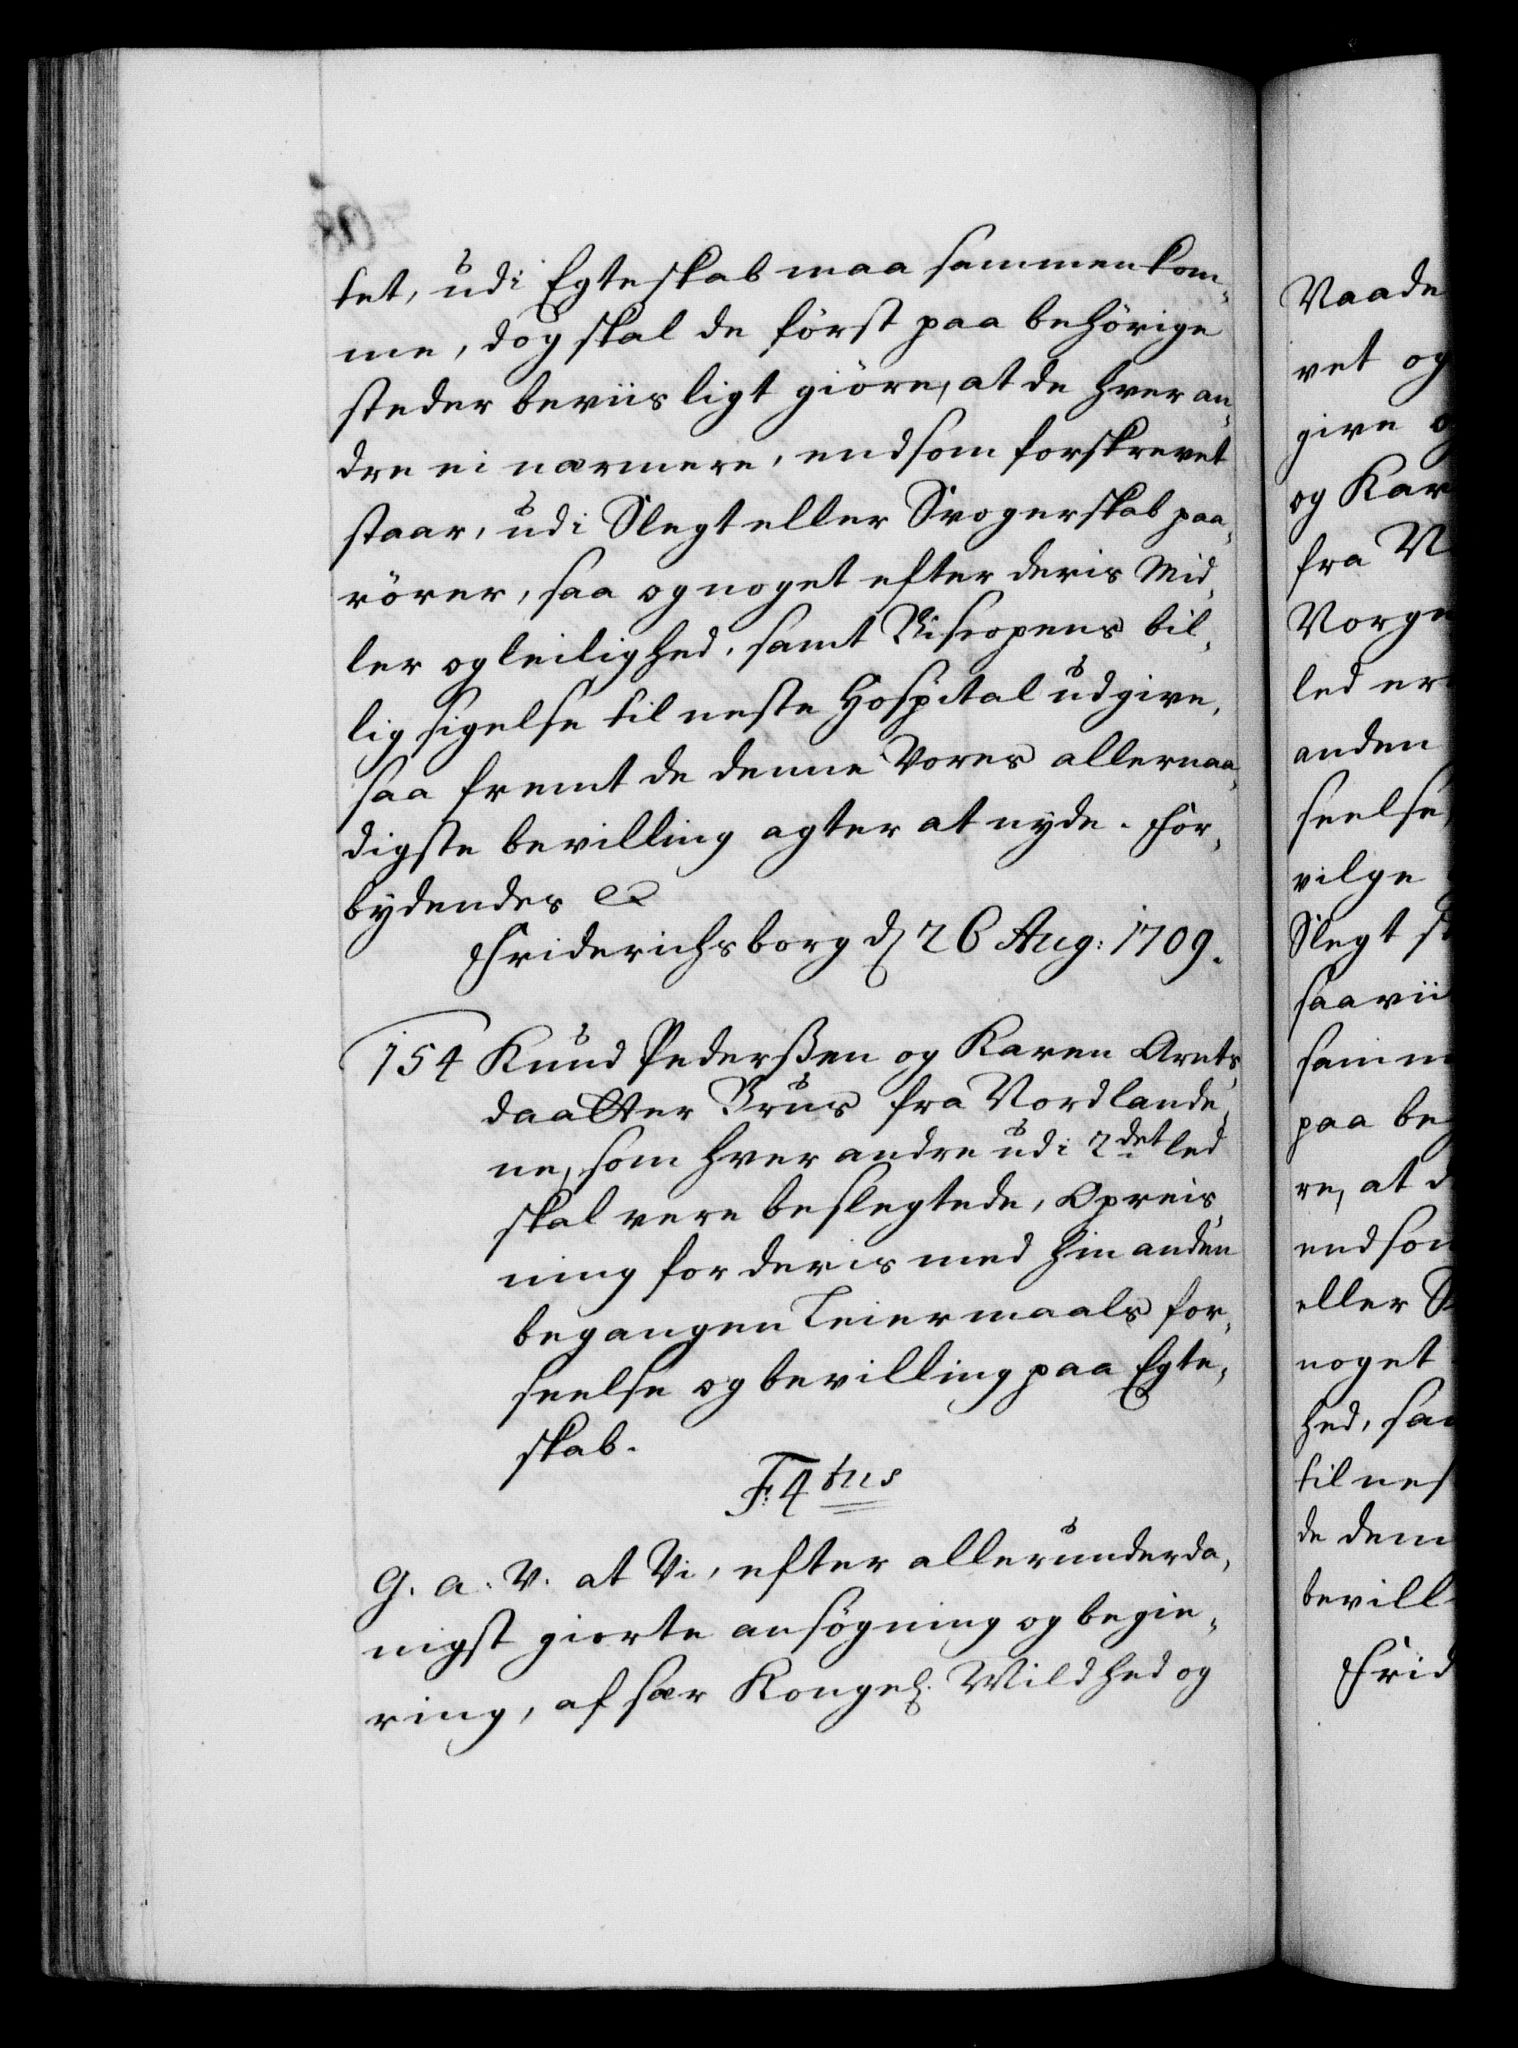 tet, udi Egteskab maa sammenkom-
me, dog skal de først paa behørige
steder beviisligt giøre, at de hver an-
dre ei nærmere, end som forskrevet
staar, udi Slegt eller Svogerskab paa-
rører, saa og noget efter deris Mid-
ler og leilighed, samt Biscopens bil-
lig sigelse til neste Hospital udgive,
saa fremt de denne Vores allernaa-
digste bevilling agter at nyde. For-
bydendes &
Friderichsborg d 26 Aug: 1709.
154 Knud Pederßen og Karen Arnts-
daatter Brus fra Nordlande-
ne, som hver andre udi 2det led
skal vere beslegtede, Opreis-
ning for deris med hinanden
begangen Leiermaals for-
seelse og bevilling paa Egte-
skab.
F: 4tus
G. a: V. at Vi, efter allerunderda-
nigst giorte ansøgning og begie-
ring, af sær Kongel. Mildhed og
Naade
vet og
give o
og Kar
fra N
Norge
led er
anden
seelse,
vilge
Slegt s
saavii
samm
paa be
re, at d
end som
eller S
noget
hed, sam
til nes
de dem
bevill
Frid